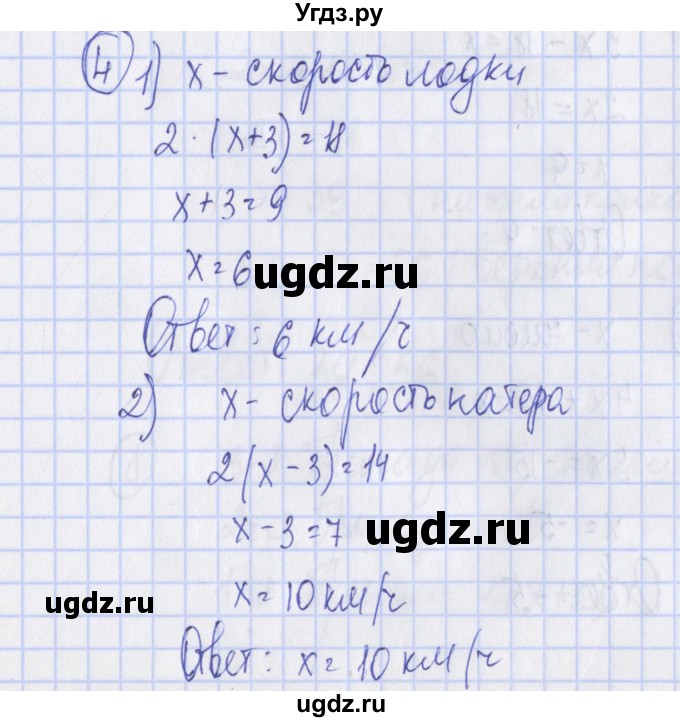 Угдз.ру
④ 1) x - скорость лодки
2 · (x+3) = 18
x + 3 = 9
x = 6
ugdz.ru
Ответ: 6 км/ч
2) x - скорость катера
2(x - 3) = 14
x - 3 = 7
ugdz.ru
x = 10 км/ч
ugdz.ru
Ответ: x = 10 км/ч
ugdz.ru